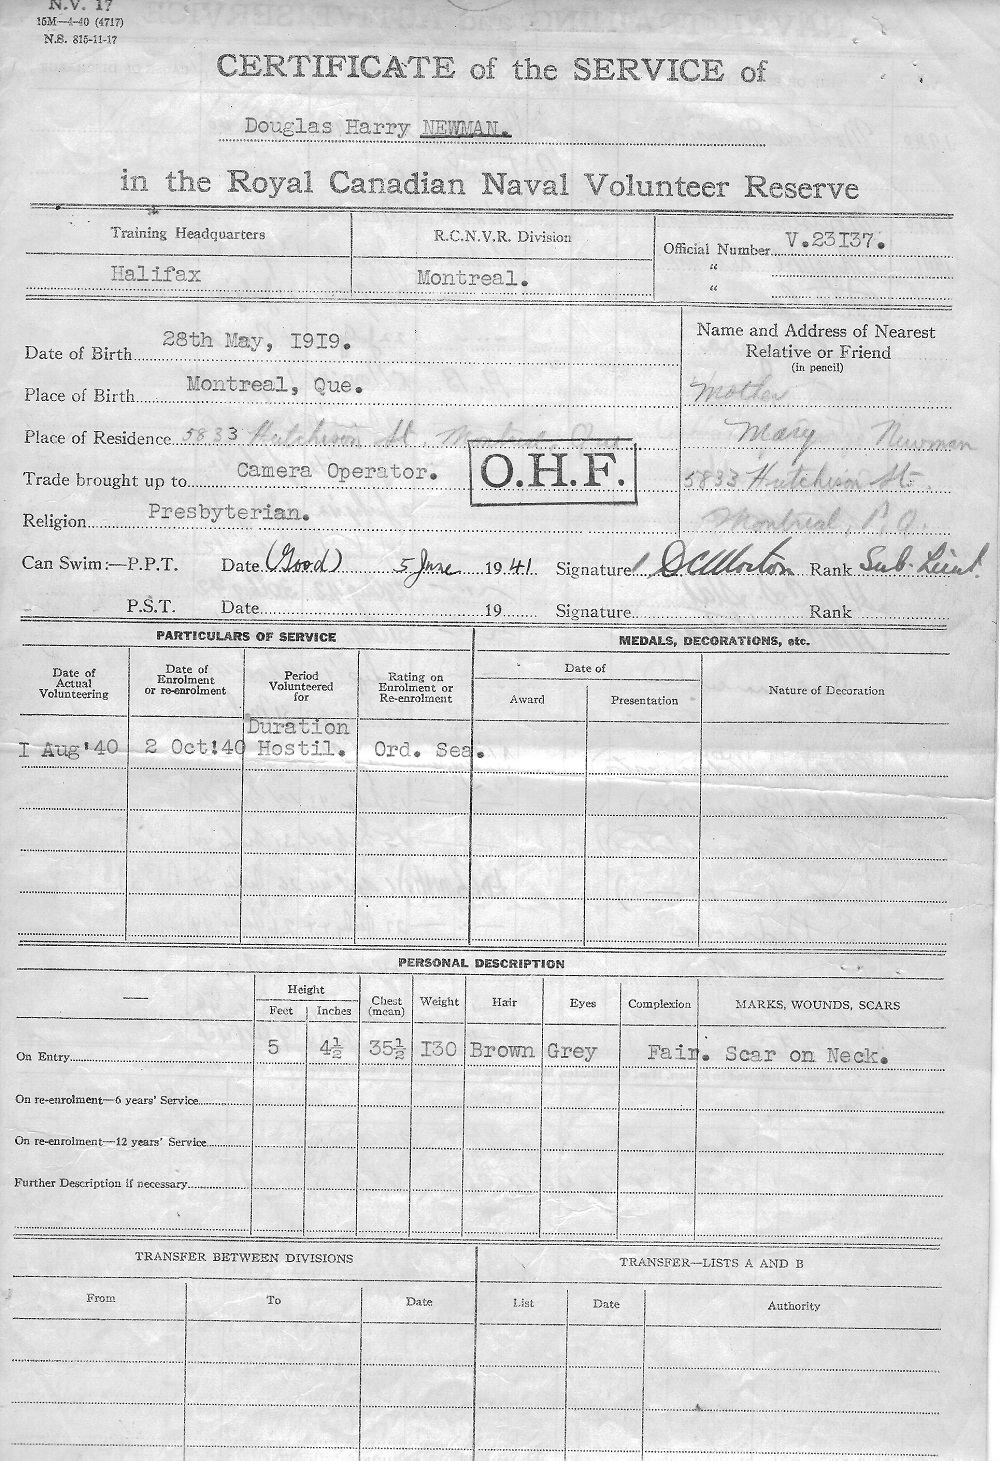 N.V. 17
15M—4-40 (4717)
N.S. 815-11-17
CERTIFICATE of the SERVICE of
Douglas Harry NEWMAN.
in the Royal Canadian Naval Volunteer Reserve
Training Headquarters
R.C.N.V.R. Division
Official Number V.23I37.
Halifax
Montreal.
"
"
Name and Address of Nearest
Relative or Friend
(in pencil)
Date of Birth 28th May, I9I9.
Place of Birth Montreal, Que.
Mother
Place of Residence 5833 Hutchison St. Montreal, Que
Mary Newman
Trade brought up to Camera Operator.
O.H.F.
5833 Hutchison St.
Religion Presbyterian.
Montreal, P.Q.
Can Swim:—P.P.T. Date (Good) 5 June 1941. Signature D C Morton Rank Sub. Lieut.
P.S.T. Date 19 Signature Rank
PARTICULARS OF SERVICE
MEDALS, DECORATIONS, etc.
Date of Actual Volunteering
Date of Enrolment or re-enrolment
Period Volunteered for
Rating on Enrolment or Re-enrolment
Date of
Award
Presentation
Nature of Decoration
Duration
I Aug'40 2 Oct!40 Hostil. Ord. Sea.
PERSONAL DESCRIPTION
—
Height
Feet
Inches
Chest (mean)
Weight
Hair
Eyes
Complexion
MARKS, WOUNDS, SCARS
On Entry 5 4½ 35½ I30 Brown Grey Fair. Scar on Neck.
On re-enrolment—6 years' Service
On re-enrolment—12 years' Service
Further Description if necessary
TRANSFER BETWEEN DIVISIONS
TRANSFER—LISTS A AND B
From
To
Date
List
Date
Authority